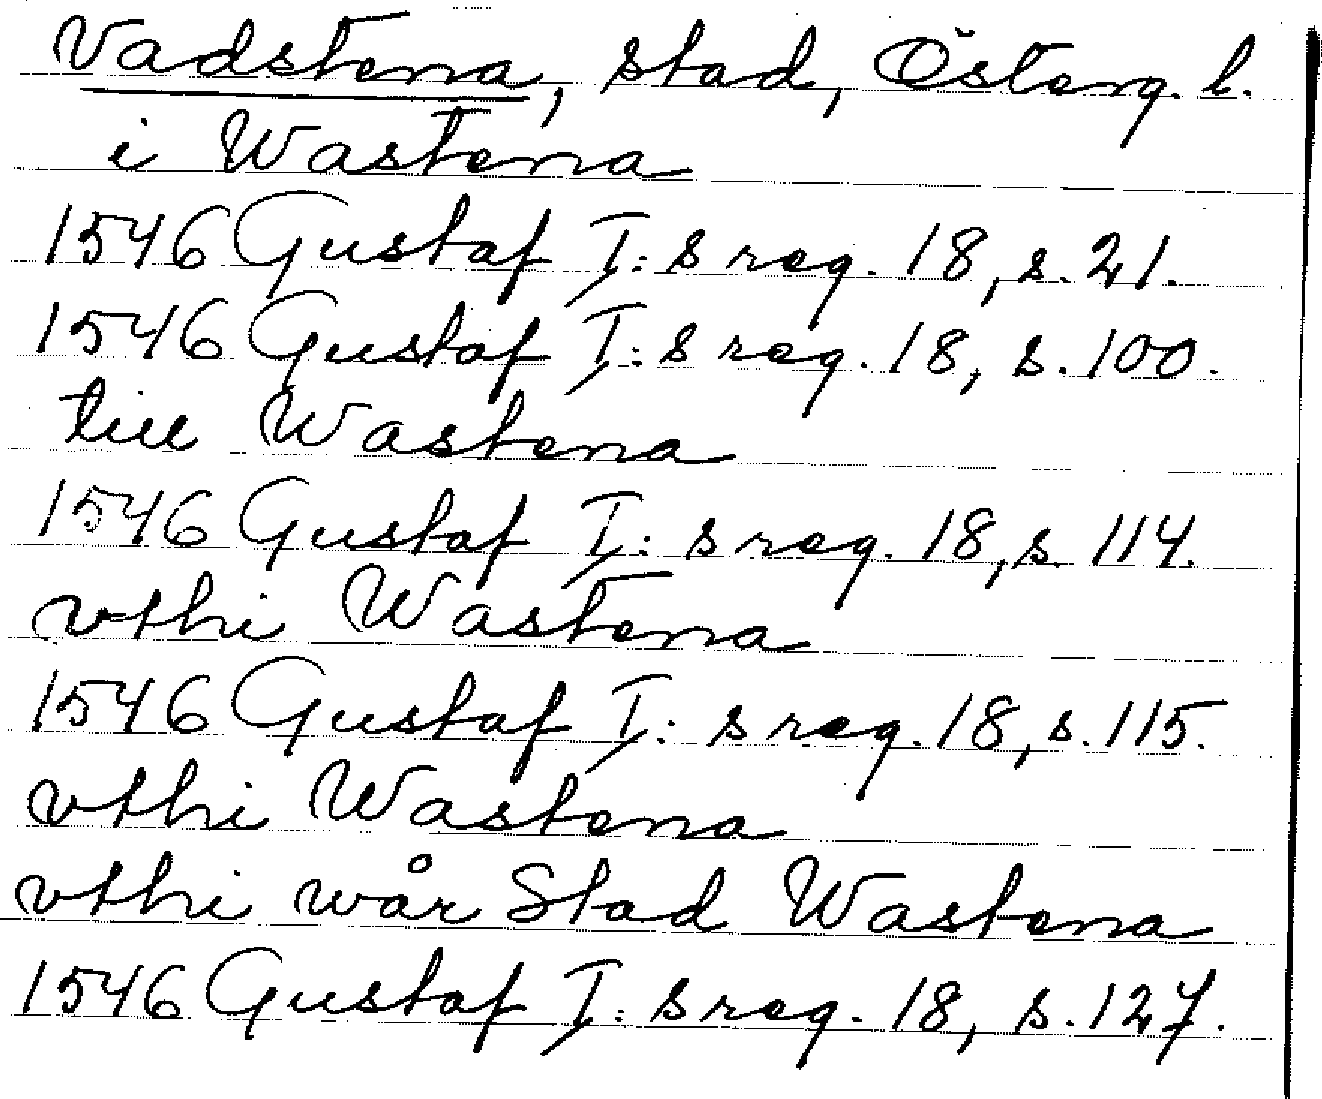 Vadstena, stad, Österg. l.
i Wastena
1546 Gustaf I:s reg. 18, s. 21.
1546 Gustaf I:s reg. 18, s. 100.
till Wastena
1546 Gustaf I:s reg. 18, s. 114.
vthi Wastena
1546 Gustaf I:s reg. 18, s. 115.
vthi Wastena
vthi wår Stad Wastena
1546 Gustaf I:s reg. 18, s. 127.